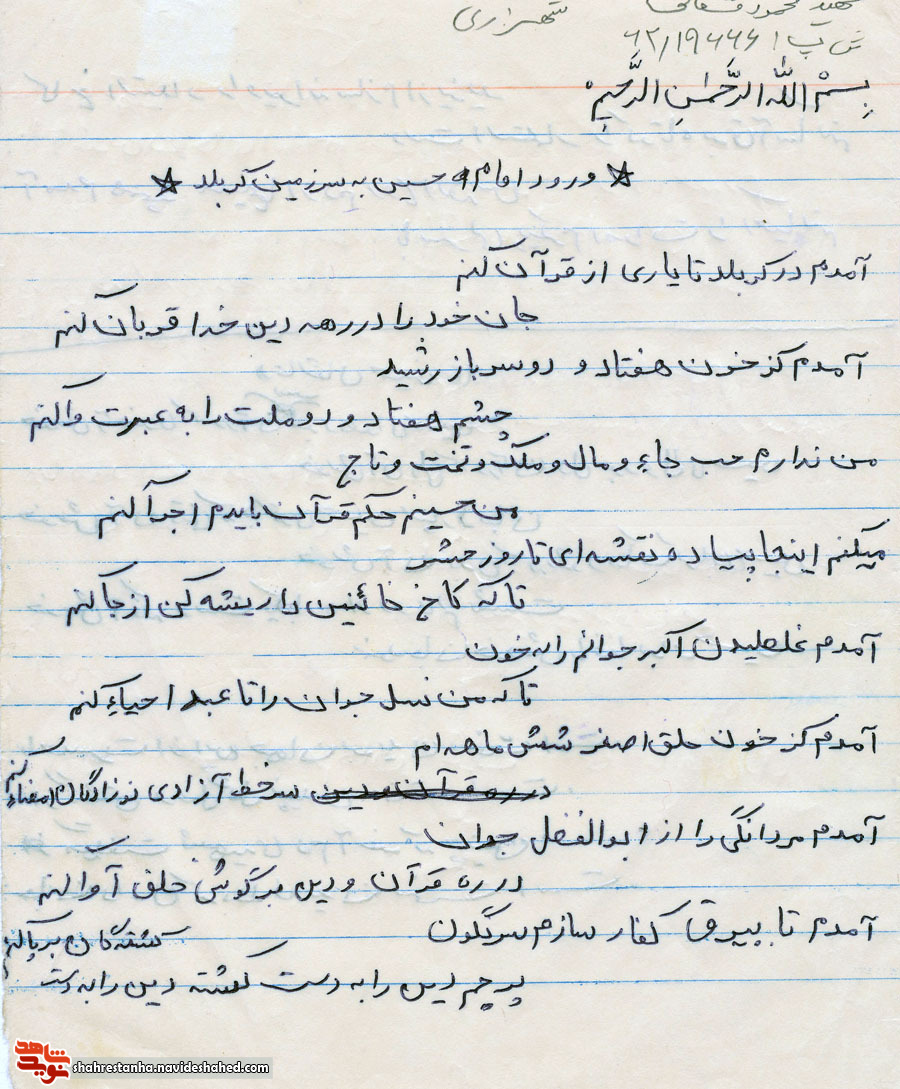 شهید محمود
شهرزاری
ش پ ۶۲/۱۹۶۶۶۱
بِسْمِ اللّٰهِ الرَّحْمٰنِ الرَّحیمِ
☆ ورود امام حسین به سرزمین کربلا ☆
آمدم در کربلا تا یاری از قرآن کنم
جان خود را در رهه دین خدا قربان کنم
آمدم کز خون هفتاد و دو سرباز رشید
چشم هفتاد و دو ملت را به عبرت وا کنم
من ندارم حب جاء و مال و ملک و تخت و تاج
من حسینم حکم قرآن بایدم اجرا کنم
میکنم اینجا پیاده نقشه ای تا روز حشر
تا که کاخ خائنین را ریشه کن از جا کنم
آمدم غلطیدن اکبر جوانم را به خون
تا که من نسل جوان را تا عبد احیاء کنم
آمدم کز خون حلق اصغر شش ماهه ام
در ره قرآن و دین سر خط آزادی نوزادگان امضاء کنم
آمدم مردانگی را از ابوالفضل جوان
در ره قرآن و دین بر گوش خلق آوا کنم
آمدم تا بیرق کفار سازم سرنگون
پرچم دین را به دست کشته دین را به دست کشته گان بر پا کنم
نوید شاهد
shahrestanha.navideshahed.com